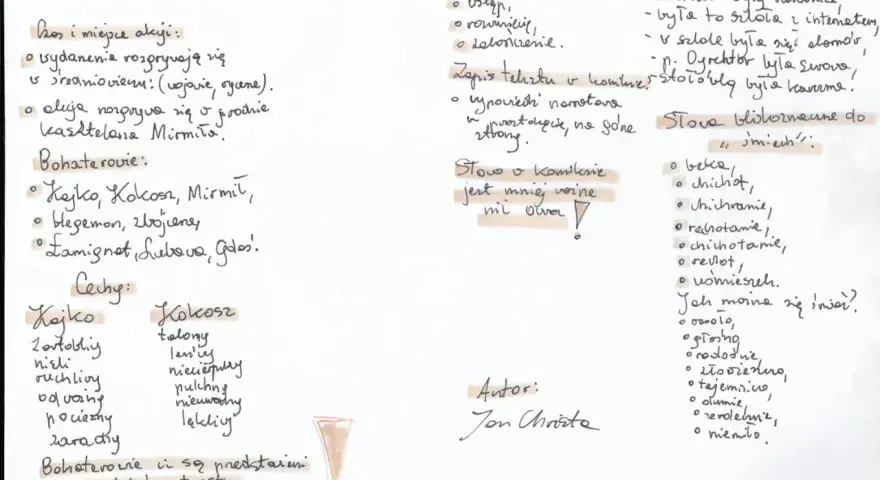 Czas i miejsce akcji:
o wydarzenia rozgrywają się
w średniowieczu: (wojowie, rycerze).
o akcja rozgrywa się w grodzie
kasztelana Mirmiła.
Bohaterowie:
o Kajko, Kokosz, Mirmił,
o Hegemon, zbójcerze,
o Łamignat, Lubawa, Gdoś.
Cechy:
Kajko
żartobliwy
niski
ruchliwy
odważny
pocieszny
zaradny
Kokosz
leniwy
niecierpliwy
pulchny
nieuważny
lękliwy
Bohaterowie ci są przedstawieni
o wstęp,
o rozwinięcie,
o zakończenie.
Zapis tekstu w komiksie:
o wypowiedzi narratora
w prostokącie, na górze
strony.
Słowo w komiksie
jest mniej ważne
niż obraz!
Autor:
Jan Christa
- była to szkoła z internatem,
- w szkole była sieć domów,
- p. Dyrektor była surowa,
- stołówką była karczma.
Słowa bliskoznaczne do
"śmiech":
o beka,
o chichot,
o chichranie,
o rechotanie,
o chichotanie,
o rechot,
o uśmieszek.
Jak można się śmiać?
o wesoło,
o głośno,
o radośnie,
o złowieszczo,
o tajemniczo,
o dumnie,
o serdecznie,
o niemiło.